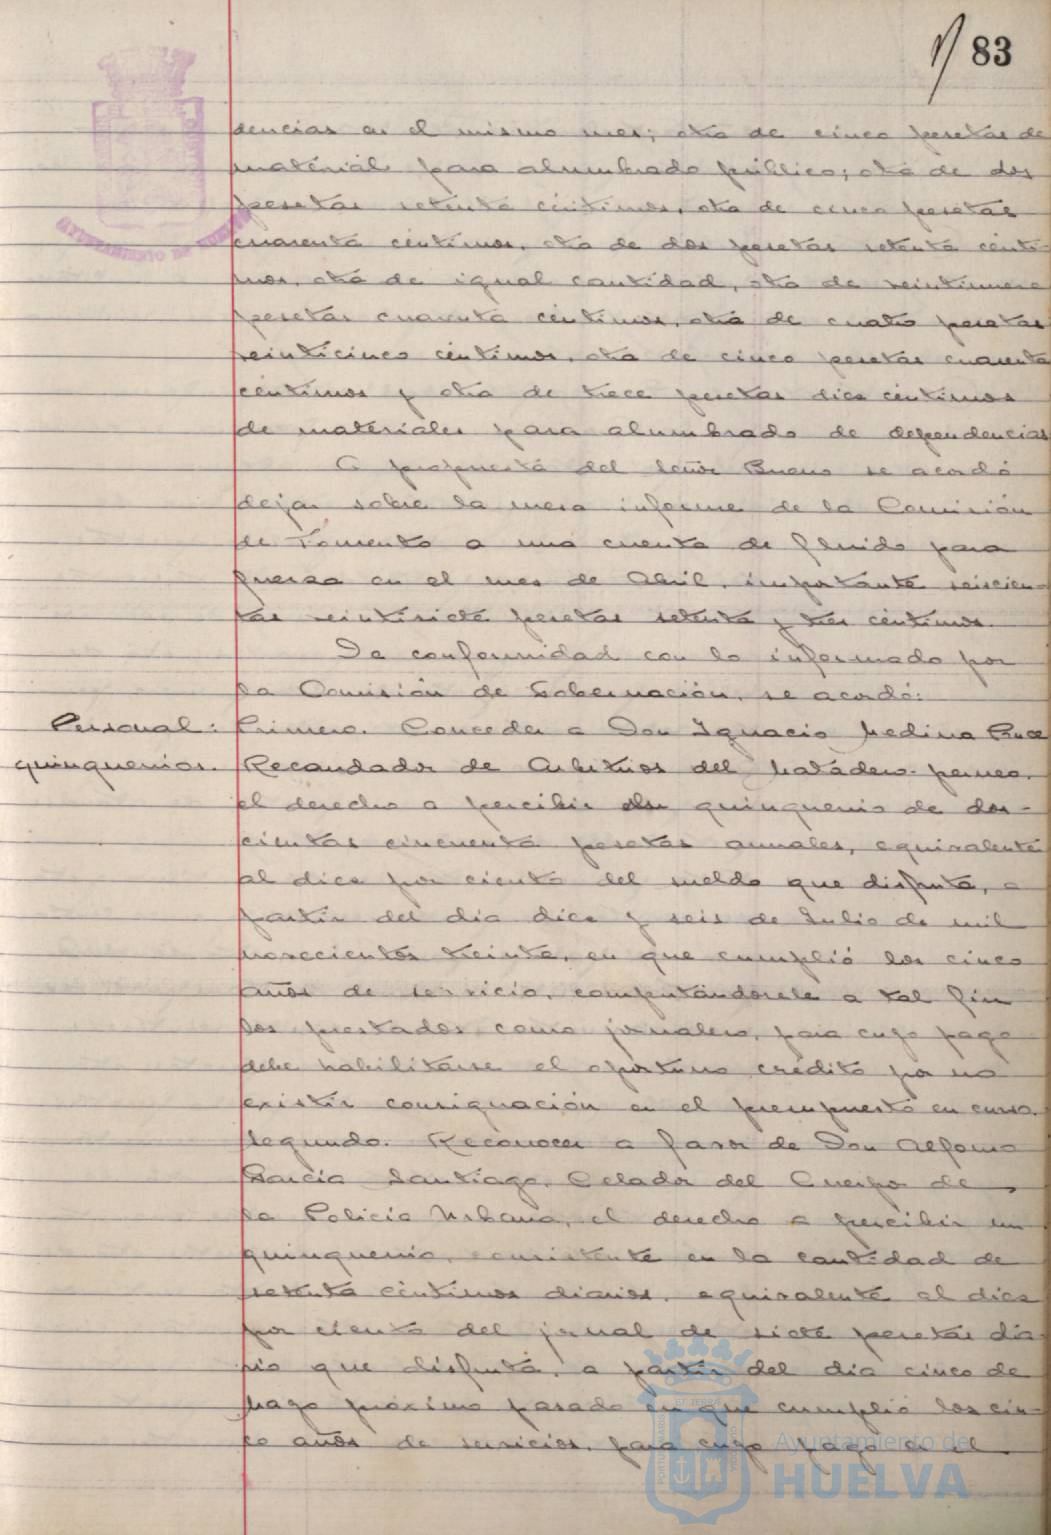 83
dencias en el mismo mes; otra de cinco pesetas de
material para alumbrado público; otra de dos
pesetas setenta céntimos, otra de cinco pesetas
cuarenta céntimos, otra de dos pesetas setenta cénti-
mos, otra de igual cantidad, otra de veintinueve
pesetas cuarenta céntimos, otra de cuatro pesetas
veinticinco céntimos, otra de cinco pesetas cuarenta
céntimos y otra de trece pesetas diez céntimos
de materiales para alumbrado de dependencias
A propuesta del Señor Bueno se acordó
dejar sobre la mesa informe de la Comisión
de Fomento a una cuenta de fluido para
fuerza en el mes de Abril, importante seiscien-
tas veintisiete pesetas setenta y tres céntimos.
De conformidad con lo informado por
la Comisión de Gobernación, se acordó:
Personal: Primero. Conceder a Don Ignacio Medina
quinquenios. Recaudador de Arbitrios del Matadero
el derecho a percibir un quinquenio de dos-
cientas cincuenta pesetas anuales, equivalente
al diez por ciento del sueldo que disfruta, a
partir del día diez y seis de Julio de mil
novecientos treinta, en que cumplió los cinco
años de servicio, computándosele a tal fin
los prestados como jornalero, para cuyo pago
debe habilitarse el oportuno crédito por no
existir consignación en el presupuesto en curso.
Segundo. Reconocer a favor de Don Alfonso
García Santiago, Celador del Cuerpo de
la Policía Urbana, el derecho a percibir un
quinquenio, consistente en la cantidad de
setenta céntimos diarios, equivalente al diez
por ciento del jornal de siete pesetas dia-
rio que disfruta, a partir del día cinco de
Mayo próximo pasado en que cumplió los cin-
co años de servicios, para cuyo pago en el
AYUNTAMIENTO DE
Ayuntamiento de
HUELVA